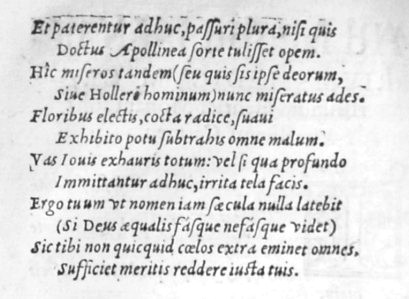 Et paterentur adhuc, passuri plura, nisi quis
Doctus Apollinea sorte tulisset opem.
Hîc miseros tandem (seu quis sis ipse deorum,
Siue Hollerê hominum) nunc miseratus ades.
Floribus electis, cocta radice, suaui
Exhibito potu subtrahis omne malum.
Vas Iouis exhauris totum: vel si qua profundo
Immittantur adhuc, irrita tela facis.
Ergo tuum vt nomen iam sæcula nulla latebit
(Si Deus æqualis fásque nefásque videt)
Sic tibi non quicquid cœlos extra eminet omnes,
Sufficiet meritis reddere iusta tuis.